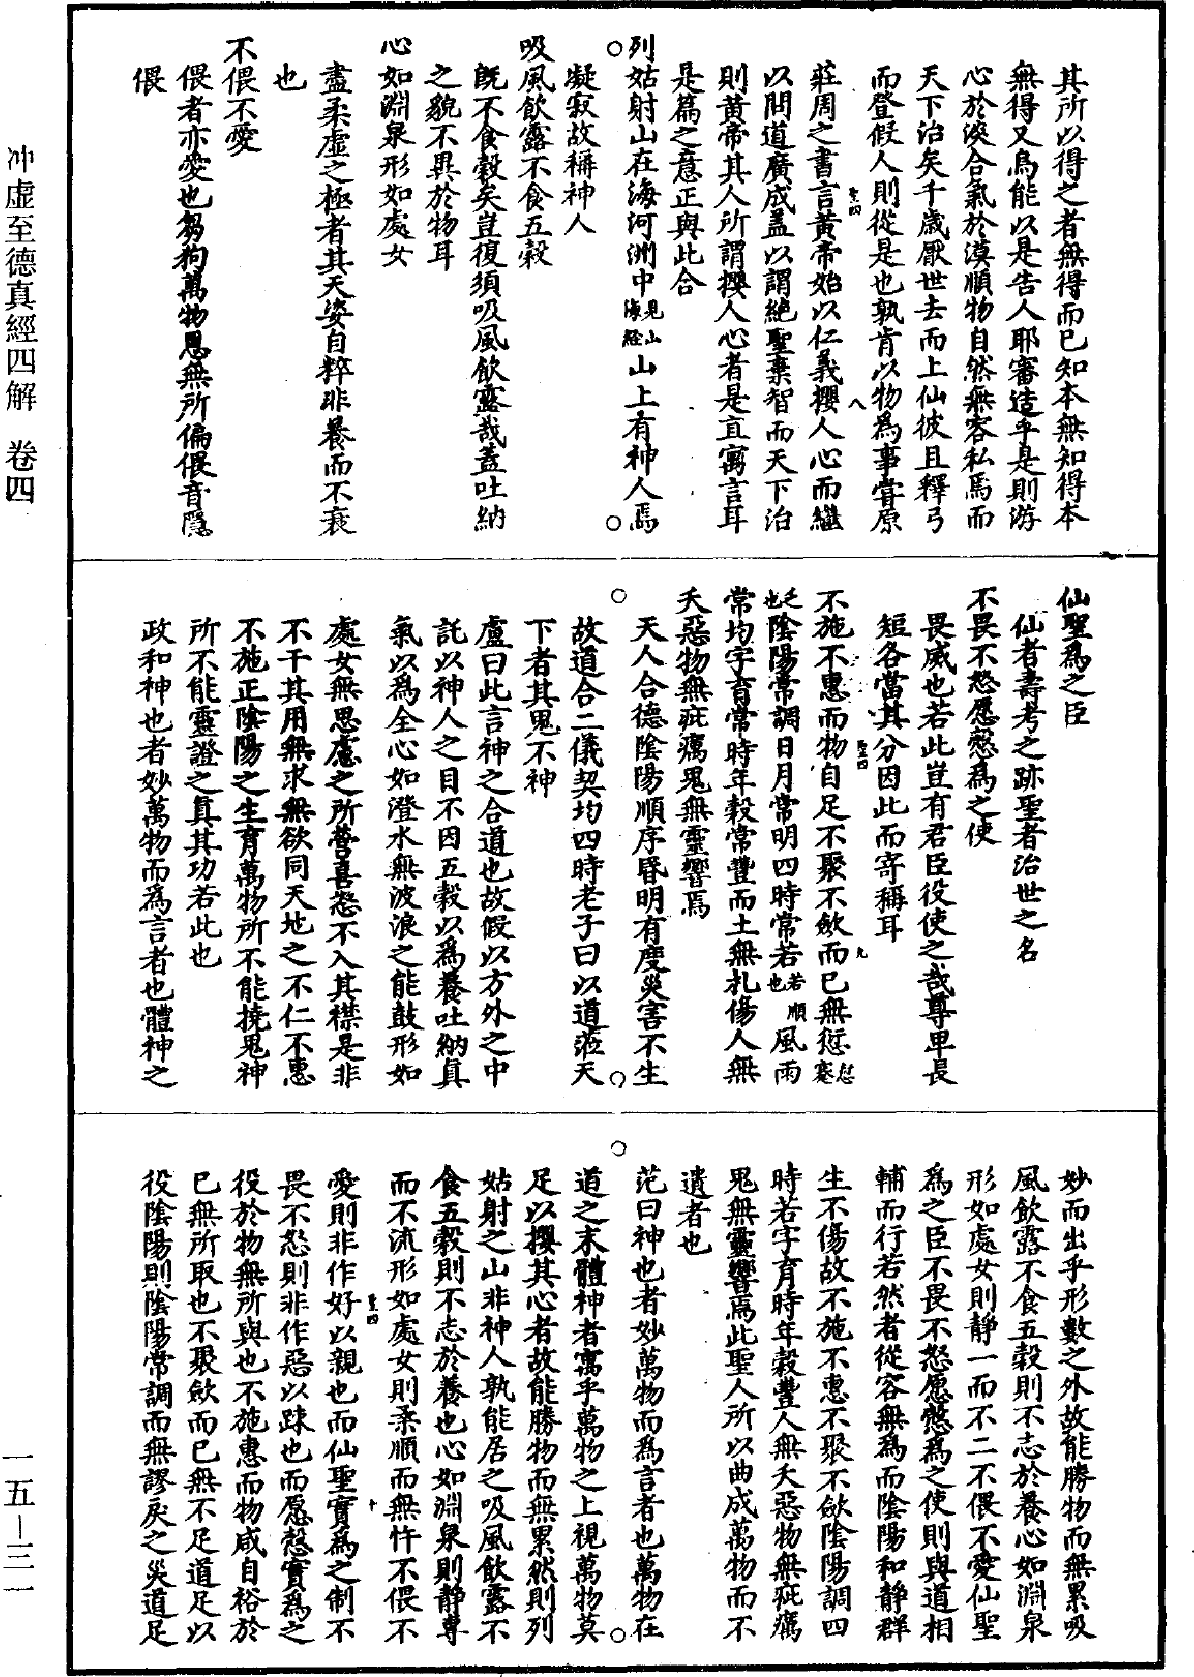 其所以得之者無得而已知本無知得本
無得又烏能以是告人耶審造乎是則游
心於淡合氣於漠順物自然無容私焉而
天下治矣千歲厭世去而上仙彼且釋弓
而登假人則從是也孰肯以物為事嘗原
莊周之書言黃帝始以仁義攖人心而繼
以問道廣成蓋以謂絕聖棄智而天下治
則黃帝其人所謂攖人心者是直寓言耳
是篇之意正與此合
列姑射山在海河洲中見山海經山上有神人焉
凝寂故稱神人
吸風飲露不食五穀
既不食穀矣豈復須吸風飲露哉蓋吐納
之貌不異於物耳
心如淵泉形如處女
盡柔虛之極者其天姿自粹非養而不衰
也
不偎不愛
偎者亦愛也芻狗萬物恩無所偏偎音隱
偎
仙聖為之臣
仙者壽考之跡聖者治世之名
不畏不怒愿慤為之使
畏威也若此豈有君臣役使之哉尊卑長
短各當其分因此而寄稱耳
不施不惠而物自足不聚不斂而已無愆愆蹇
乏也陰陽常調日月常明四時常若若順也風雨
常均字育常時年穀常豐而土無札傷人無
夭惡物無疵癘鬼無靈響焉
天人合德陰陽順序昏明有度災害不生
故道合二儀契均四時老子曰以道蒞天
下者其鬼不神
盧曰此言神之合道也故假以方外之中
託以神人之目不因五穀以為養吐納真
氣以為全心如澄水無波浪之能鼓形如
處女無思慮之所營喜怒不入其襟是非
不干其用無求無欲同天地之不仁不惠
不施正陰陽之生育萬物所不能撓鬼神
所不能靈證之真其功若此也
政和神也者妙萬物而為言者也體神之
妙而出乎形數之外故能勝物而無累吸
風飲露不食五穀則不志於養心如淵泉
形如處女則靜一而不二不偎不愛仙聖
為之臣不畏不怒愿慤為之使則與道相
輔而行若然者從容無為而陰陽和靜群
生不傷故不施不惠不聚不斂陰陽調四
時若字育時年穀豐人無夭惡物無疵癘
鬼無靈響焉此聖人所以曲成萬物而不
遺者也
范曰神也者妙萬物而為言者也萬物在
道之末體神者寓乎萬物之上視萬物莫
足以攖其心者故能勝物而無累然則列
姑射之山非神人孰能居之吸風飲露不
食五穀則不志於養也心如淵泉則靜專
而不流形如處女則柔順而無忤不偎不
愛則非作好以親也而仙聖實為之制不
畏不怒則非作惡以踈也而愿慤實為之
役於物無所與也不施惠而物咸自裕於
已無所取也不聚斂而已無不足道足以
役陰陽則陰陽常調而無謬戾之災道足
冲虛至德真經四解 卷四
一五—三一